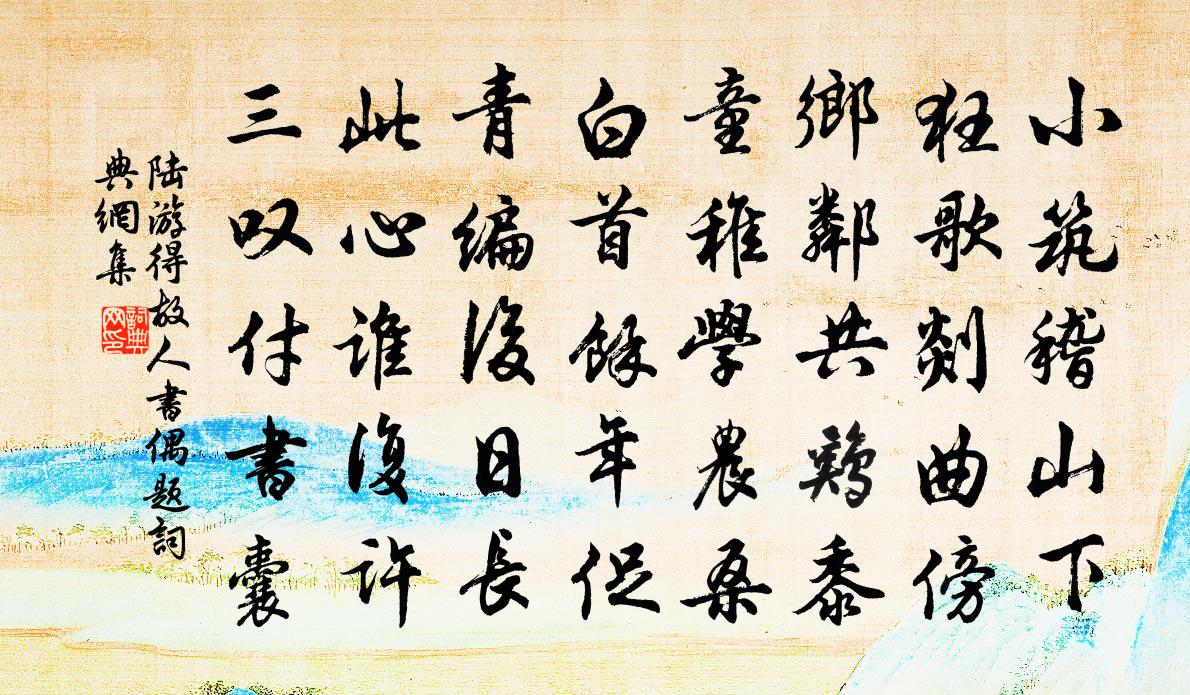 小筑稽山下
狂歌剡曲傍
鄉鄰共鷄黍
童稚學農桑
白首餘年促
青編後日長
此心誰復許
三叹付書囊
陆游得故人書偶题詞
典網集
詞典
网印